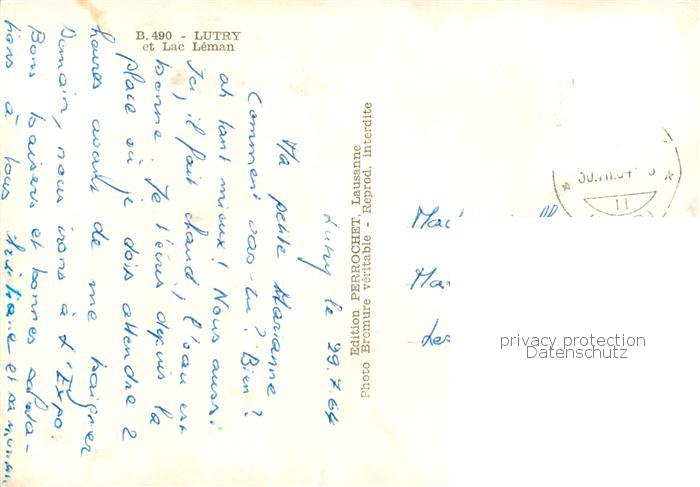 B. 490 - LUTRY
et Lac Léman
Lutry le 29.7.64
Ma petite Marianne
Comment vas-tu? Bien?
ah tant mieux! Nous aussi.
Ici, il fait chaud; l'eau est
bonne. Je t'écris depuis la
place où je dois attendre 2
heures avant de me baigner
Demain, nous irons à l'Expo.
Bons baisers et bonnes saluta-
tions à tous
et sa maman.
Edition PERROCHET, Lausanne
Photo Bromure véritable - Reprod. interdite
privacy protection
Datenschutz